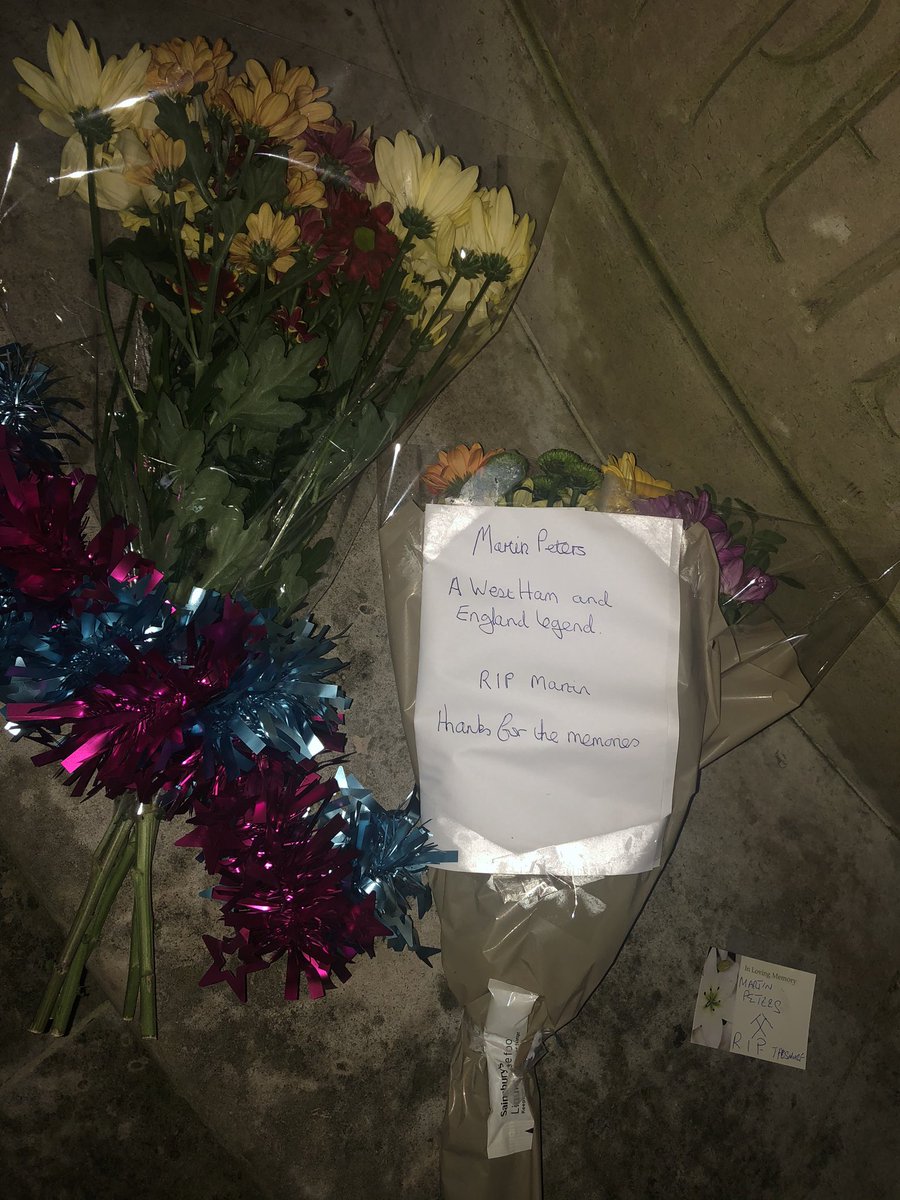 Martin Peters
A West Ham and
England legend.
RIP Martin
thanks for the memories
In Loving Memory
MARTIN
PETERS
R.I.P.
Sainsbury's